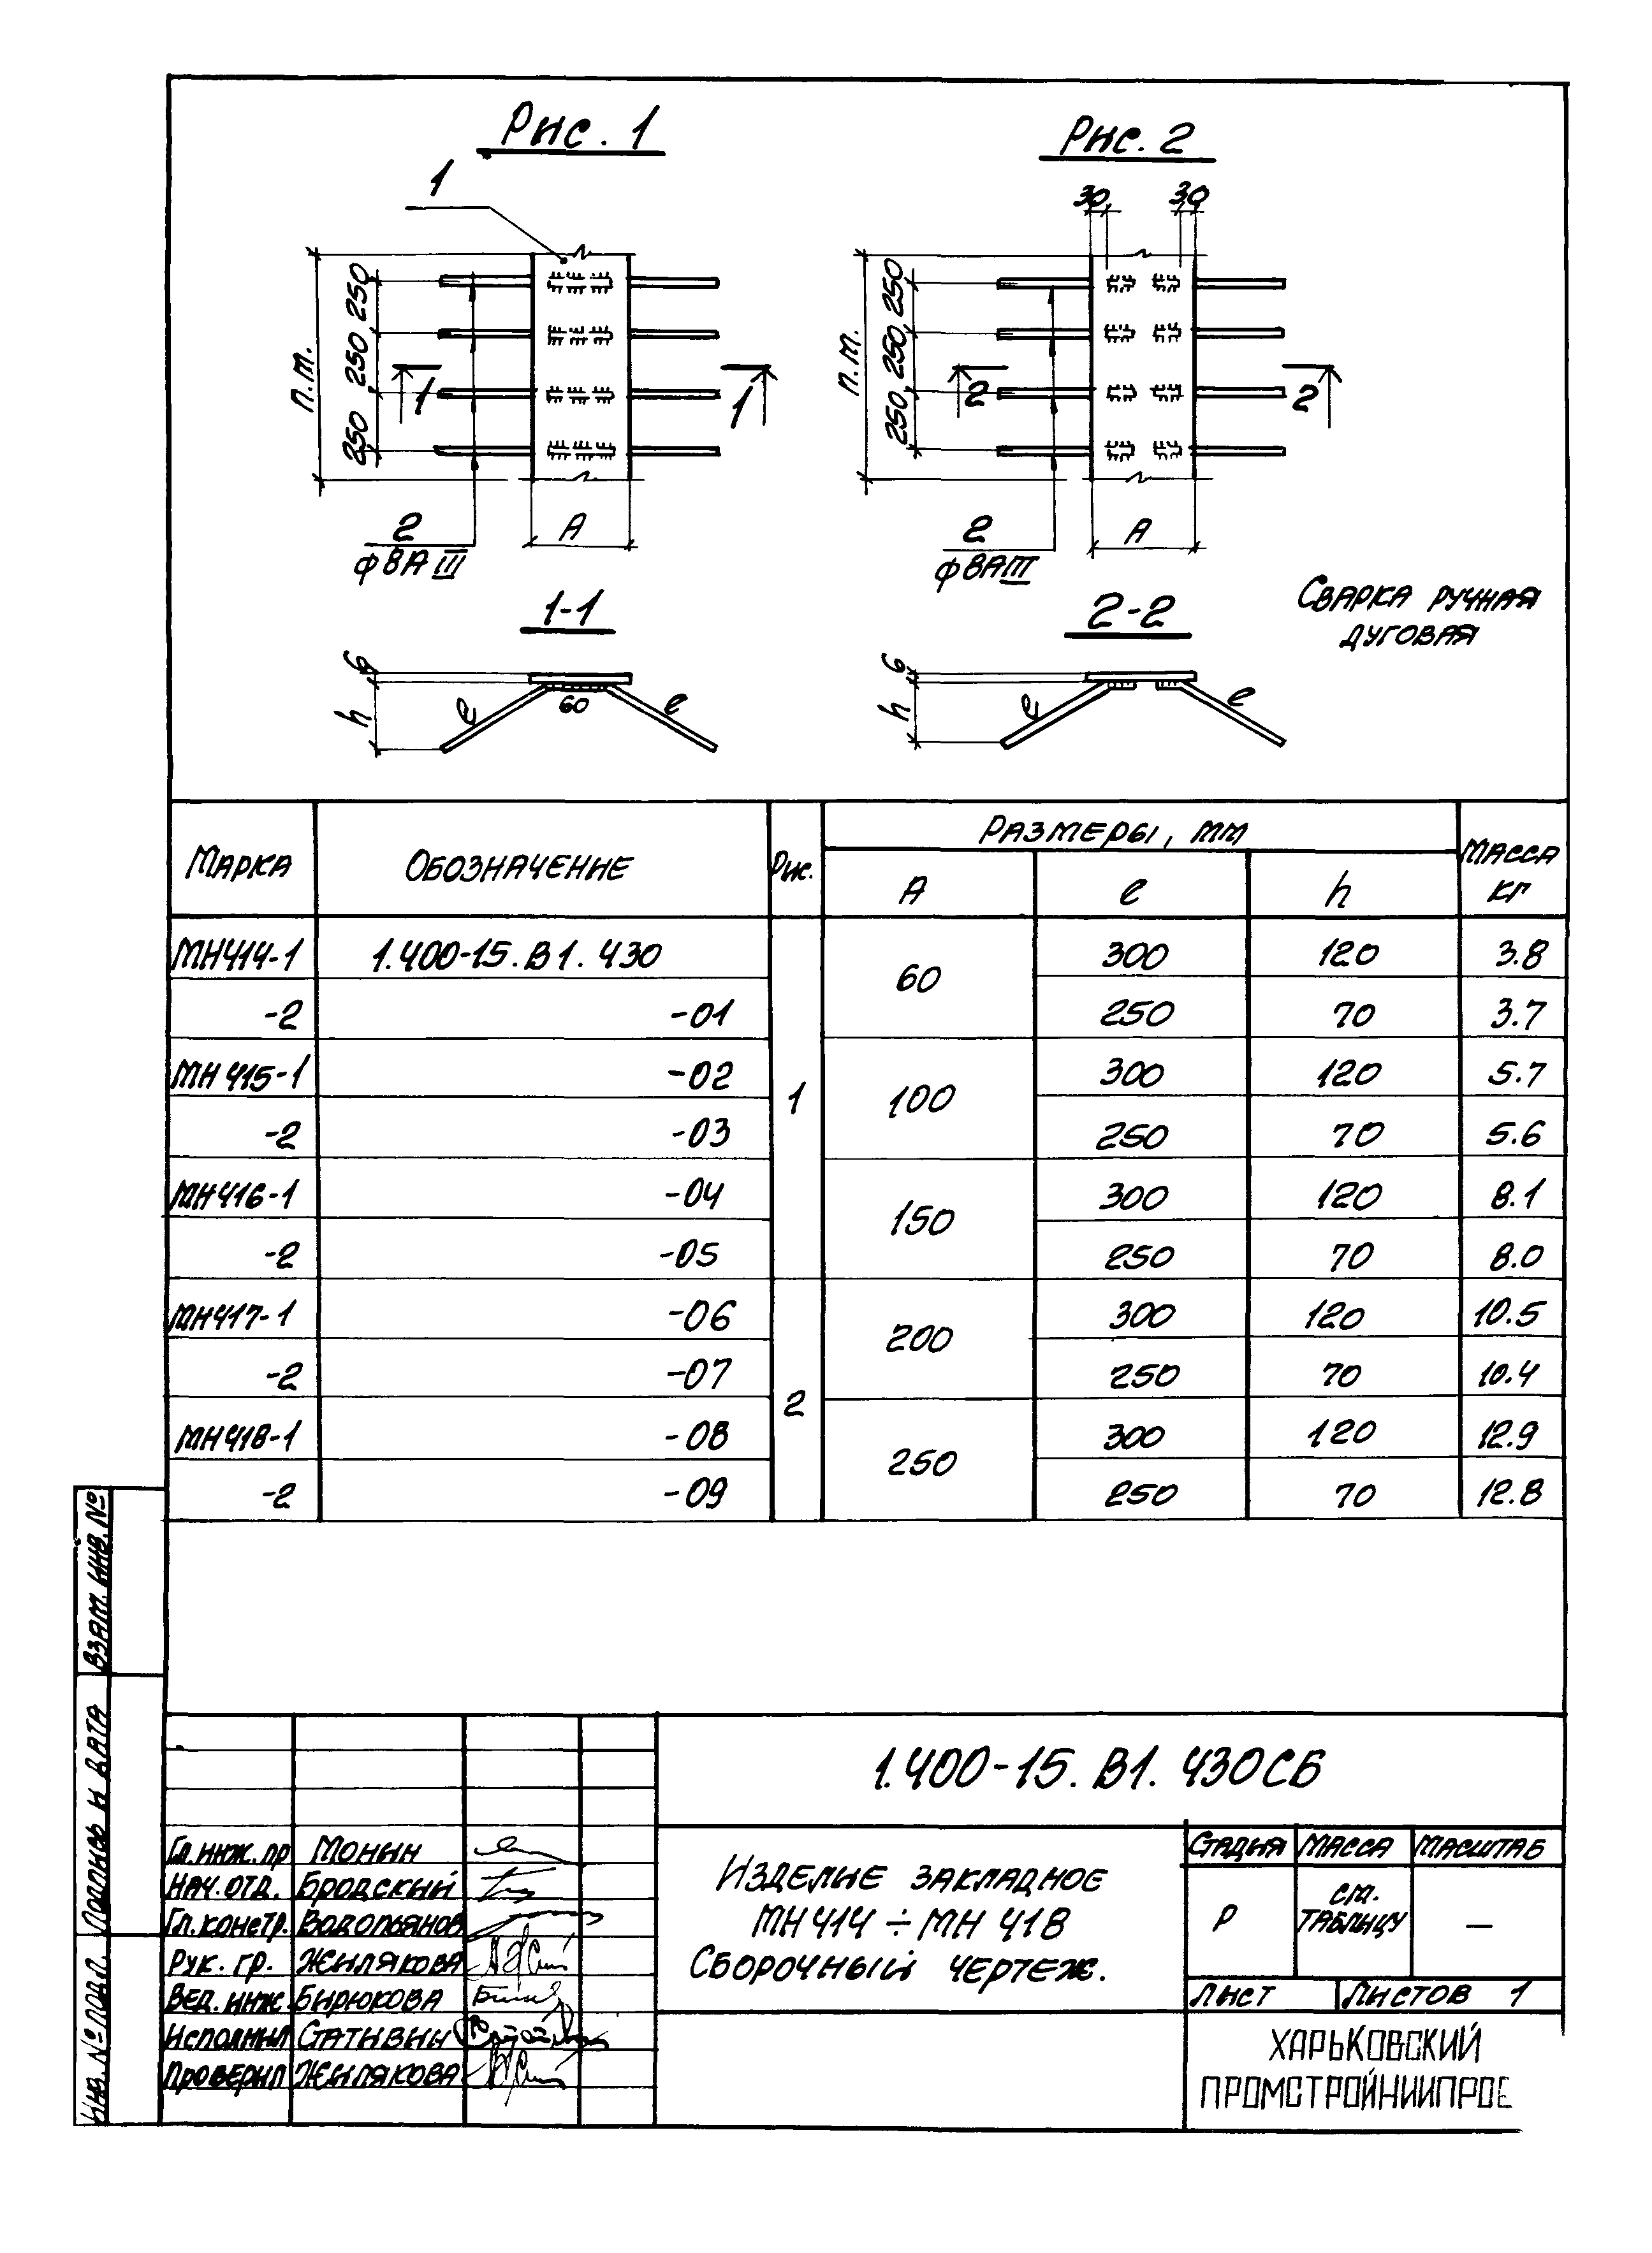 Рис. 1
Рис. 2
1
30 30
250 250 250
п.м.
1 1
2
ф8АIII
А
250 250 250
п.м.
2 2
2
ф8АIII
А
1-1
2-2
Сварка ручная
дуговая
6
h
е 60 е
6
h
е е
Марка Обозначение Рис. Размеры, мм Масса кг
А е h
МН414-1 1.400-15.В1.430 1 60 300 120 3.8
-2 -01 250 70 3.7
МН415-1 -02 100 300 120 5.7
-2 -03 250 70 5.6
МН416-1 -04 150 300 120 8.1
-2 -05 250 70 8.0
МН417-1 -06 2 200 300 120 10.5
-2 -07 250 70 10.4
МН418-1 -08 250 300 120 12.9
-2 -09 250 70 12.8
Взам. инв. №
Подпись и дата
Инв. № подл.
1.400-15.В1.430СБ
Гл.инж.пр Монин
Нач.отд. Бродский
Гл.констр. Водопьянов
Рук. гр. Жилякова
Вед.инж. Бирюкова
Исполнил Стативин
Проверил Жилякова
Изделие закладное
МН414÷МН418
Сборочный чертеж.
Стадия Масса Масштаб
Р см. таблицу —
Лист Листов 1
ХАРЬКОВСКИЙ
ПРОМСТРОЙНИИПРОЕ